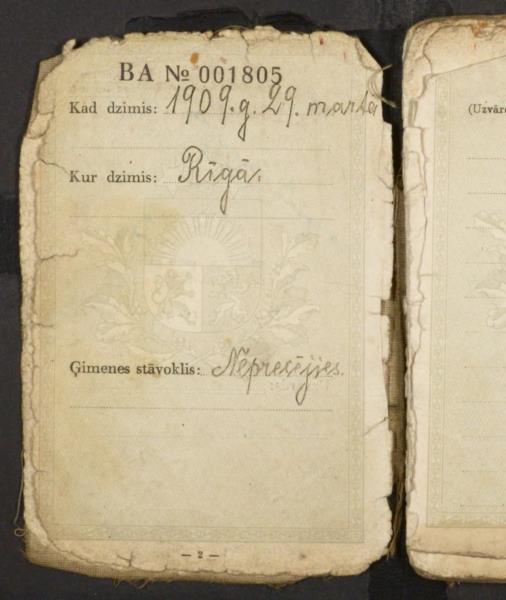 BA № 001805
Kad dzimis: 1909. g. 29. martā
Kur dzimis: Rīgā.
Ģimenes stāvoklis: Neprecējies.
— 2 —
(Uzvārd